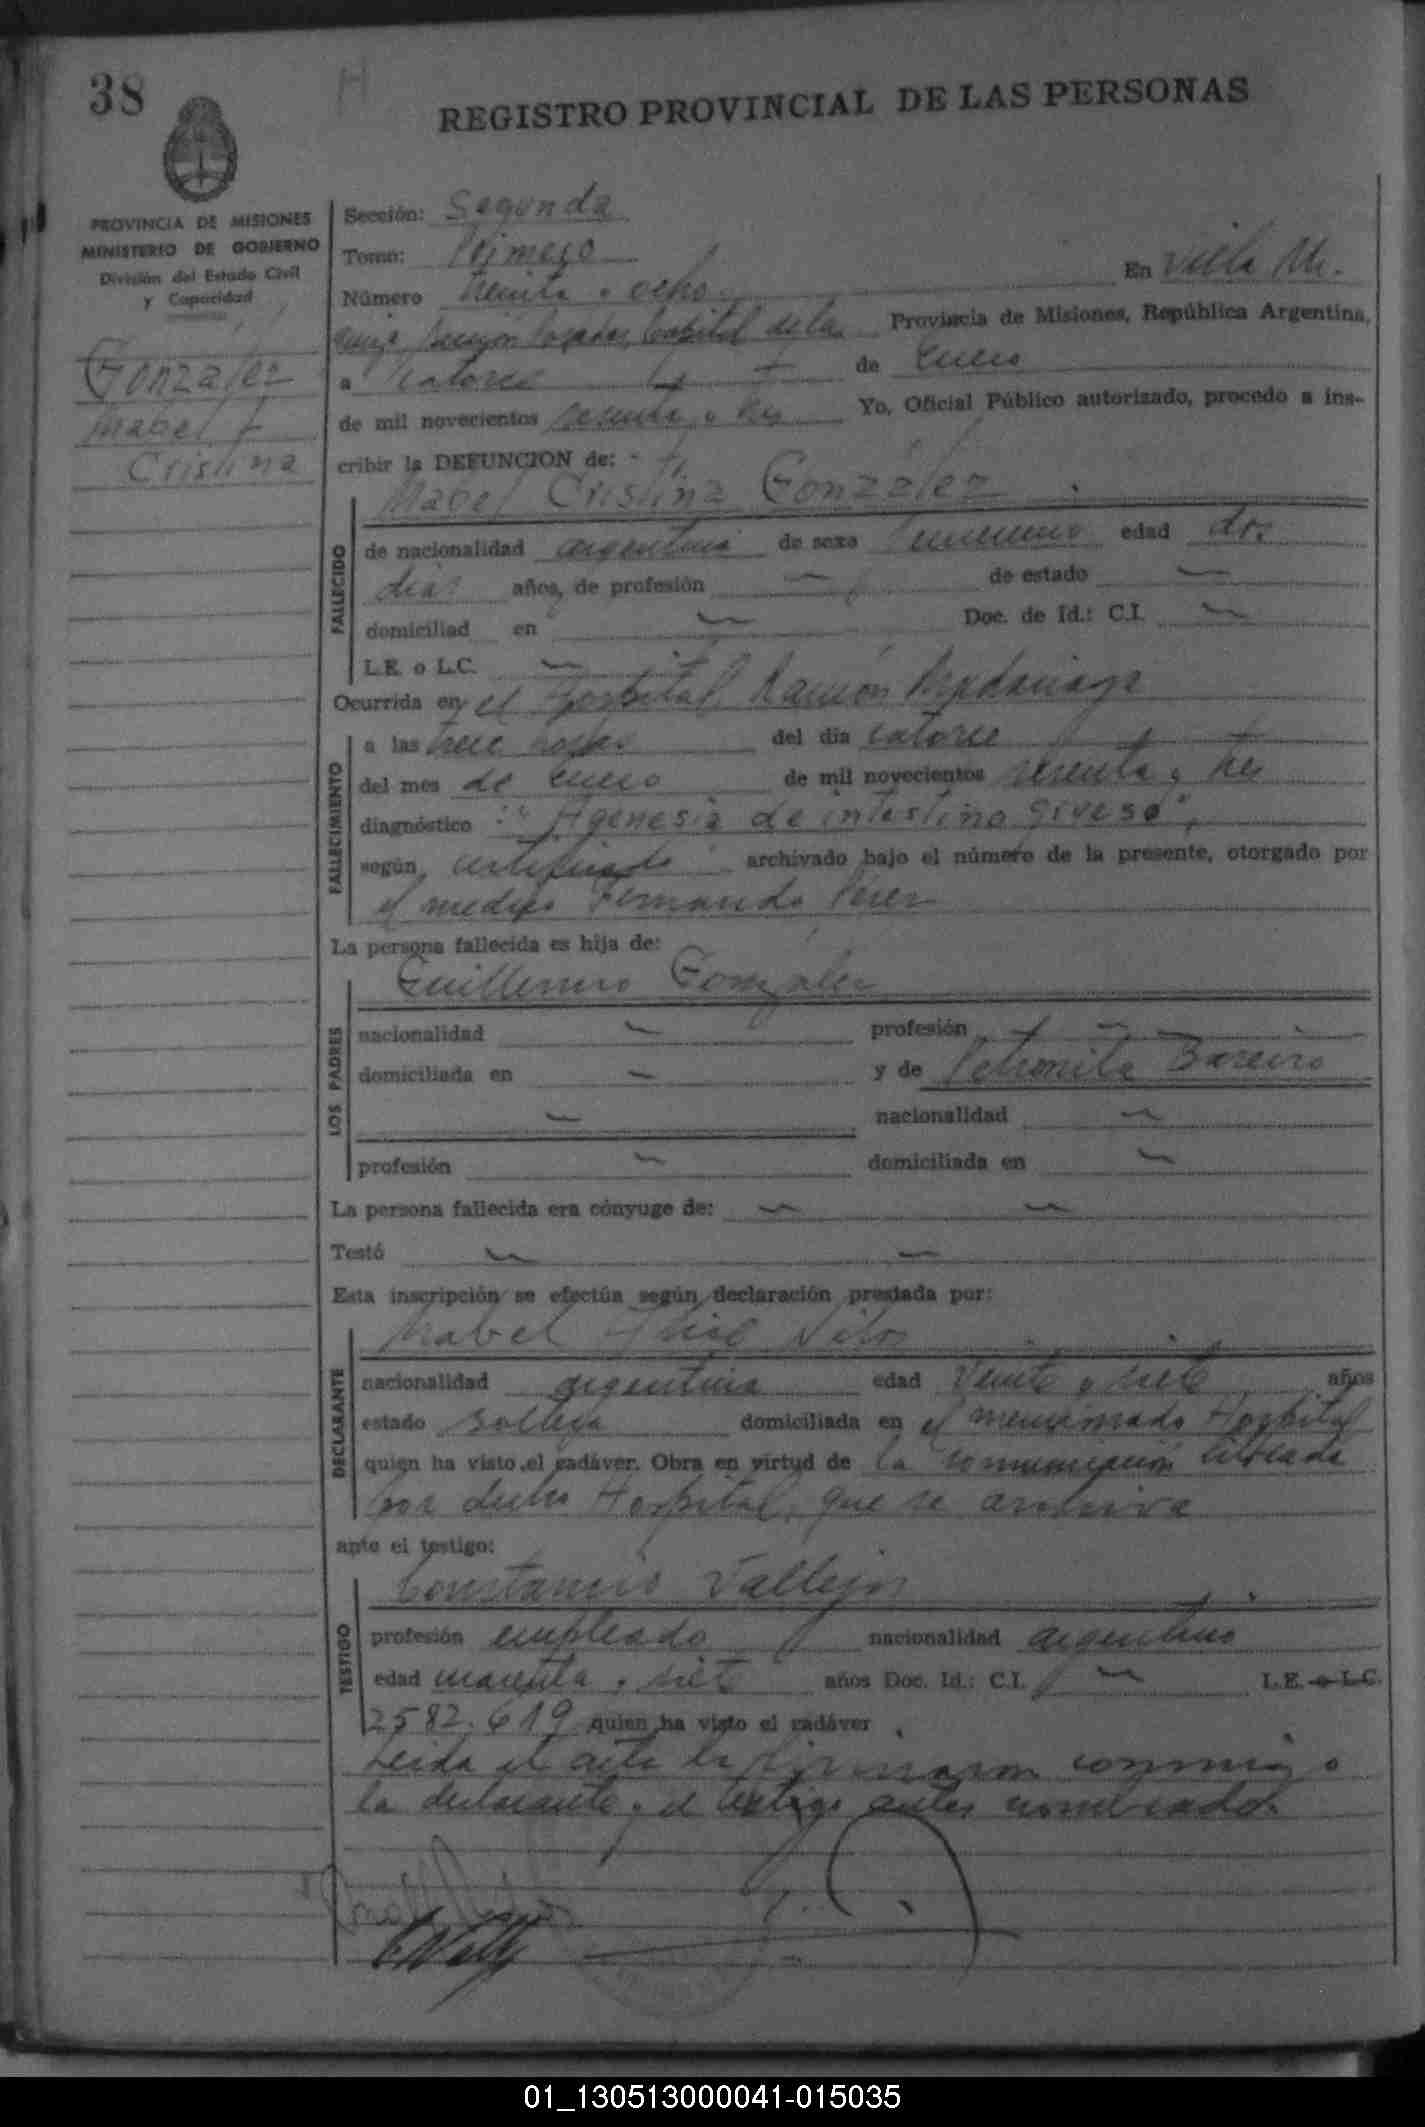 38
REGISTRO PROVINCIAL DE LAS PERSONAS
PROVINCIA DE MISIONES
MINISTERIO DE GOBIERNO
División del Estado Civil
y Capacidad
González
Mabel
Cristina
Sección: Segunda
Tomo: Primero
En Villa
Número treinta y ocho
Posadas, Capital de la Provincia de Misiones, República Argentina,
a catorce de Enero
de mil novecientos sesenta y tres Yo, Oficial Público autorizado, procedo a ins-
cribir la DEFUNCION de:
Mabel Cristina González
FALLECIDO
de nacionalidad argentina de sexo femenino edad dos
días años, de profesión de estado
domiciliad en Doc. de Id.: C.I.
L.E. o L.C.
Ocurrida en el Hospital Ramón Madariaga
FALLECIMIENTO
a las trece horas del dia catorce
del mes de Enero de mil novecientos sesenta y tres
diagnóstico : "Agenesia de intestino grueso",
según certificado archivado bajo el número de la presente, otorgado por
el médico Fernando Pérez
La persona fallecida es hija de:
LOS PADRES
Guillermo González
nacionalidad profesión
domiciliada en y de Petronila Bareiro
nacionalidad
profesión domiciliada en
La persona fallecida era cónyuge de:
Testó
Esta inscripción se efectúa según declaración prestada por:
DECLARANTE
Mabel
nacionalidad argentina edad Veinte y siete años
estado soltera domiciliada en el mencionado Hospital
quien ha visto el cadáver. Obra en virtud de la comunicación librada
por dicho Hospital, que se archiva
ante el testigo:
TESTIGO
Constancio Vallejos
profesión empleado nacionalidad argentino
edad cuarenta y siete años Doc. Id.: C.I. L.E. o L.C.
2582.619 quien ha visto el cadáver
Leida el acta la firmaron conmigo
la declarante y el testigo antes nombrado.
01_130513000041-015035